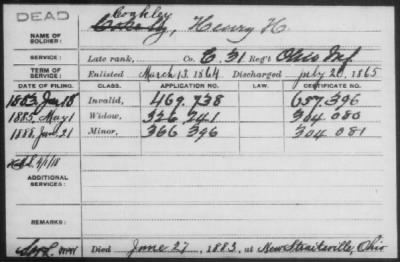 DEAD
Coakley
NAME OF SOLDIER: Henry H.
SERVICE: Late rank, Co. E. 31 Reg't Ohio Inf.
TERM OF SERVICE: Enlisted March 13, 1864 Discharged July 20, 1865
DATE OF FILING. CLASS. APPLICATION NO. LAW. CERTIFICATE NO.
1883 Jan 18 Invalid, 469.738 657.396
1885, May 1 Widow, 326 241 304 080
1888 Jan 21 Minor, 366 396 304 081
ADDITIONAL SERVICES:
REMARKS:
Died June 27, 1883, at New Straitsville, Ohio